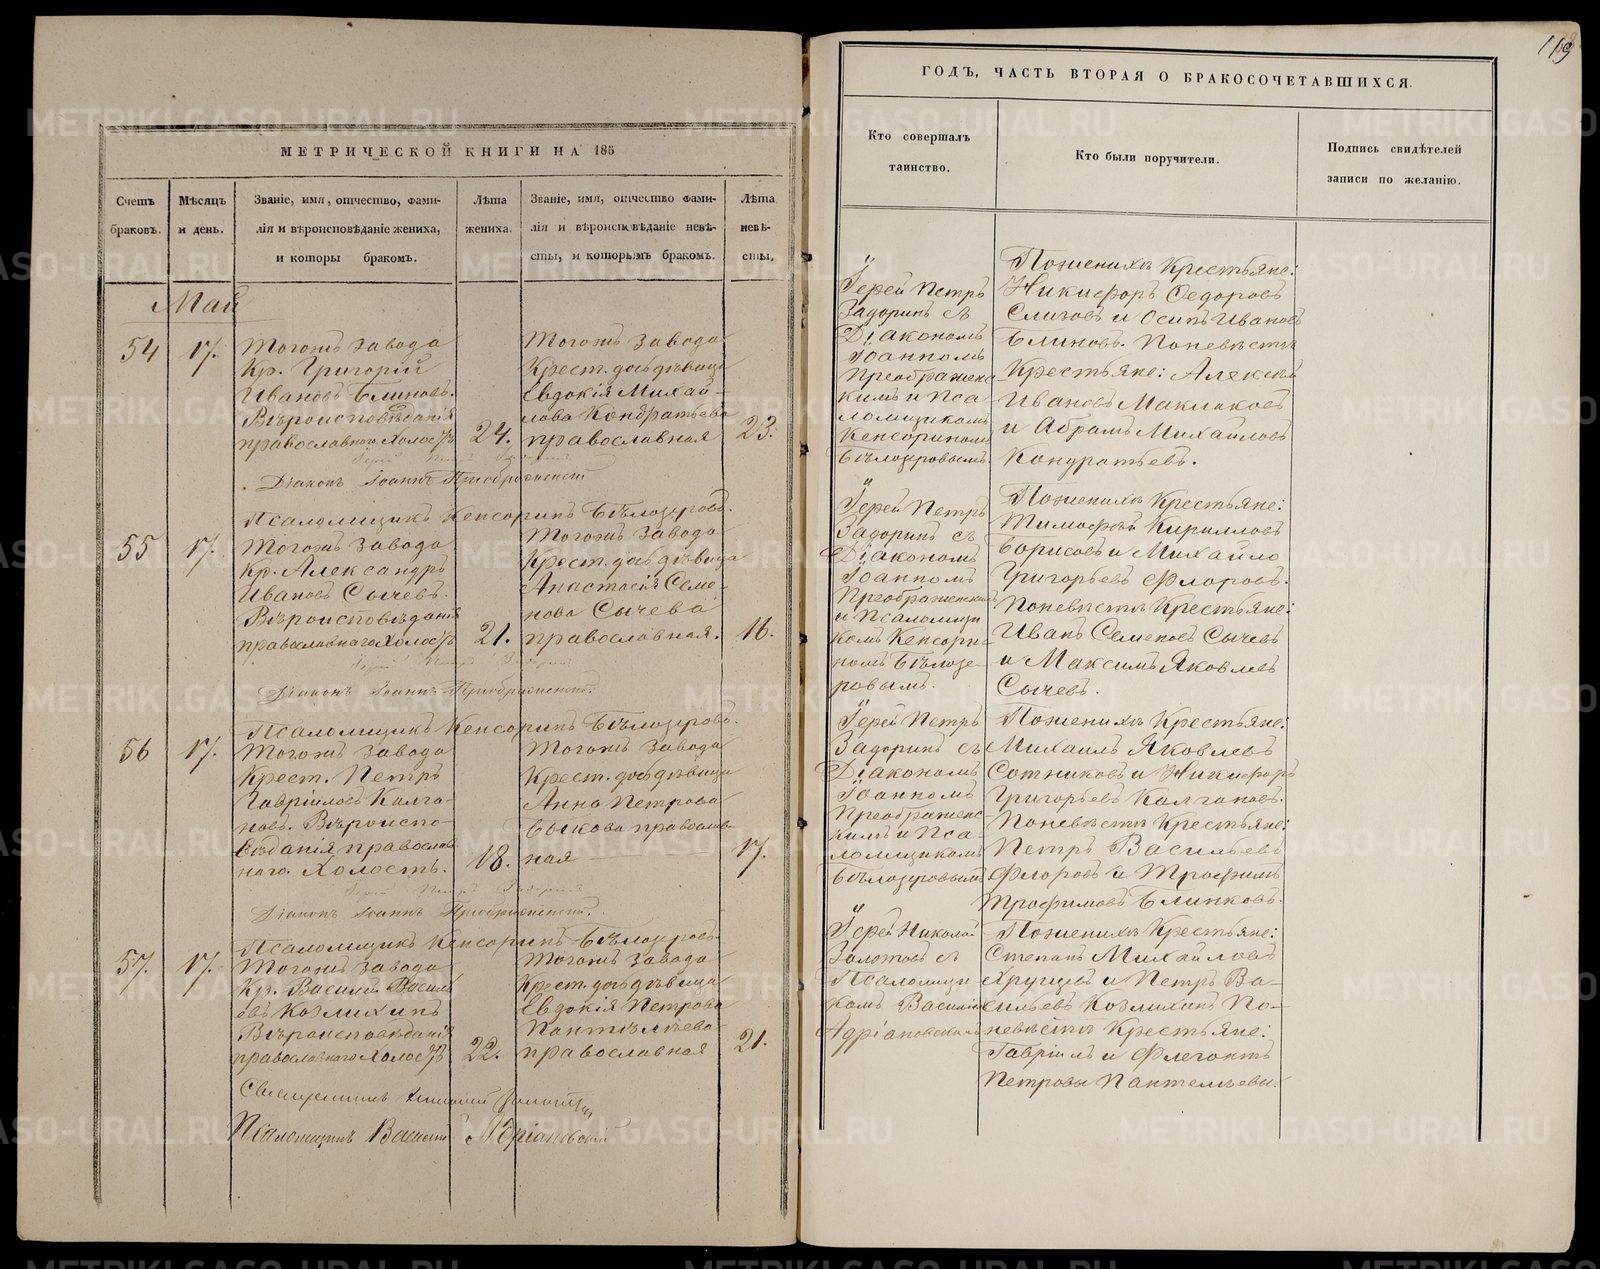 МЕТРИЧЕСКОЙ КНИГИ НА 185
Счетъ браковъ.
Мѣсяцъ и день.
Званіе, имя, отчество, фами-
лія и вѣроисповѣданіе жениха,
и которы бракомъ.
Лѣта
жениха.
Званіе, имя, отчество фами-
лія и вѣроисповѣданіе невѣ-
сты, и которымъ бракомъ.
Лѣта
невѣ-
сты,
Май
54
17.
Тогожъ завода
Кр. Григорій
Ивановъ Блиновъ.
Вѣроисповѣданія
православнаго Холостъ
24.
Тогожъ завода
Крест. дочь дѣвица
Евдокія Михай-
лова Кондратьева
православная
23.
Діаконъ Іоаннъ Преображенскій
Псаломщикъ Кенсоринъ Бѣлозеровъ.
55
17.
Тогожъ завода
Кр. Александръ
Ивановъ Сычевъ.
Вѣроисповѣданія
православнаго Холостъ
21.
Тогожъ завода
Крест. дочь дѣвица
Анастасія Семе-
нова Сычева
православная.
16.
Діаконъ Іоаннъ Преображенскій.
Псаломщикъ Кенсоринъ Бѣлозеровъ.
56
17.
Тогожъ завода
Крест. Петръ
Гавріиловъ Колго-
новъ. Вѣроиспо-
вѣданія православ
наго. Холостъ.
18.
Тогожъ завода
Крест. дочь дѣвица
Анна Петрова
Быкова православ-
ная
17.
Діаконъ Іоаннъ Преображенскій.
Псаломщикъ Кенсоринъ Бѣлозеровъ.
57.
17.
Тогожъ завода
Кр. Василій Васил
евъ Козмихинъ
Вѣроисповѣданія
православнаго Холостъ
22.
Тогожъ завода
Крест. дочь дѣвица
Евдокія Петрова
Пантелѣева
православная
21.
Священникъ Николай Золотовъ
Псаломщикъ Василій Адріановскій
119
ГОДЪ, ЧАСТЬ ВТОРАЯ О БРАКОСОЧЕТАВШИХСЯ.
Кто совершалъ
таинство.
Кто были поручители.
Подпись свидѣтелей
записи по желанію.
Іерей Петръ
Задоринъ съ
Діакономъ
Іоанномъ
Преображенс
кимъ и Пса-
ломщикомъ
Кенсориномъ
Бѣлозеровымъ.
Поженихѣ Крестьяне:
Никифоръ Ѳедоровъ
Слизовъ и Осипъ Ивановъ
Блиновъ. Поневѣстѣ
Крестьяне: Алексѣй
Ивановъ Маклаковъ
и Абрамъ Михайловъ
Кондратьевъ.
Іерей Петръ
Задоринъ съ
Діакономъ
Іоанномъ
Преображенскимъ
и Псаломщи
комъ Кенсори-
номъ Бѣлозе-
ровымъ.
Поженихѣ Крестьяне:
Тимофѣй Кирилловъ
Борисовъ и Михайло
Григорьевъ Флоровъ.
Поневѣстѣ Крестьяне:
Иванъ Семеновъ Сычевъ
и Максимъ Яковлевъ
Сычевъ.
Іерей Петръ
Задоринъ съ
Діакономъ
Іоанномъ
Преображенс
кимъ и Пса-
ломщикомъ
Бѣлозеровымъ
Поженихѣ Крестьяне:
Михаилъ Яковлевъ
Сотниковъ и Никифоръ
Григорьевъ Колгановъ.
Поневѣстѣ Крестьяне:
Петръ Васильевъ
Флоровъ и Трофимъ
Трофимовъ Блинковъ.
Іерей Николай
Золотовъ съ
Псаломщи
комъ Василіе
Адріановскимъ
Поженихѣ Крестьяне:
Степанъ Михайловъ
Хрущевъ и Петръ Ва-
сильевъ Козмихинъ По-
невѣстѣ Крестьяне:
Гавріилъ и Флегонтъ
Петровы Пантелѣевы.
METRIKI.GASO-URAL.RU